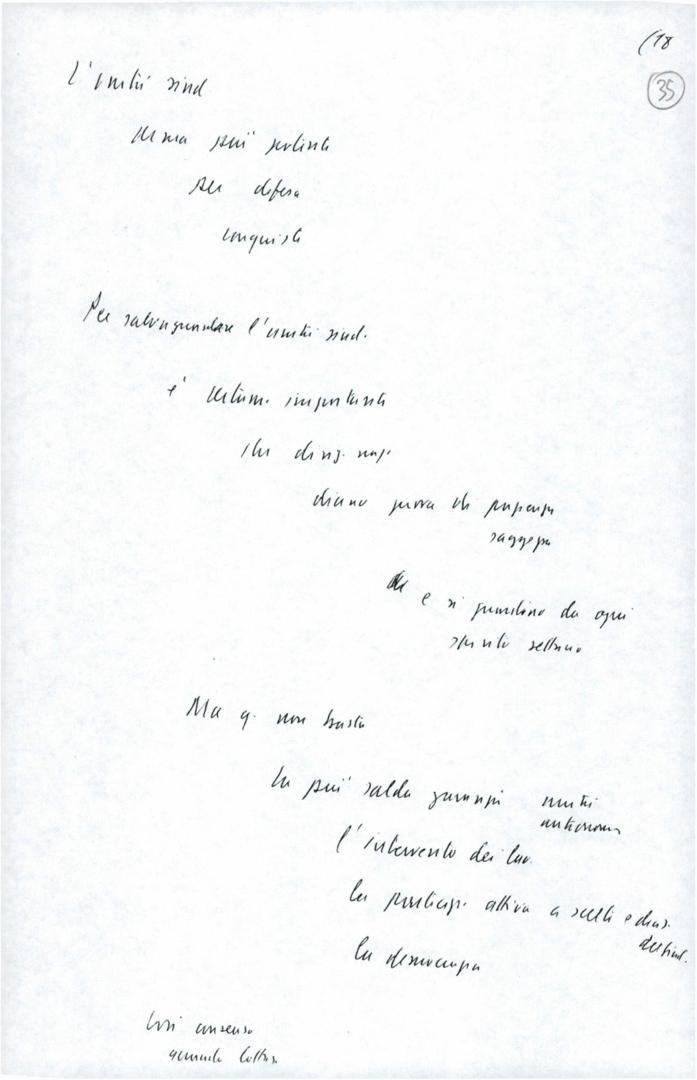 (18
35
L'unità sind
arma più potente
per difesa
conquiste
Per salvaguardare l'unità sind.
e' importante
che dirig.
diano prova di pazienza
saggezza
e si guardino da ogni
spirito settario
Ma q. non basta
la più salda garanzia unità
autonomia
l'intervento dei lav.
la partecip. attiva a scelte e decis.
del sind.
la democrazia
Così consenso
grande lotta